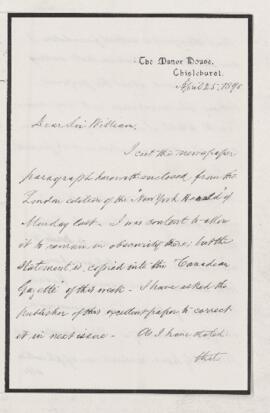 The Manor House,
Chislehurst.
April 25, 1890
Dear Sir William,
I cut the newspaper
paragraph herewith enclosed from the
London edition of the "New York Herald" of
Monday last. I was content to allow
it to remain in obscurity there; but the
statement is copied into the "Canadian
Gazette" of this week. I have asked the
publisher of this excellent paper to correct
it in next issue - As I have stated
that